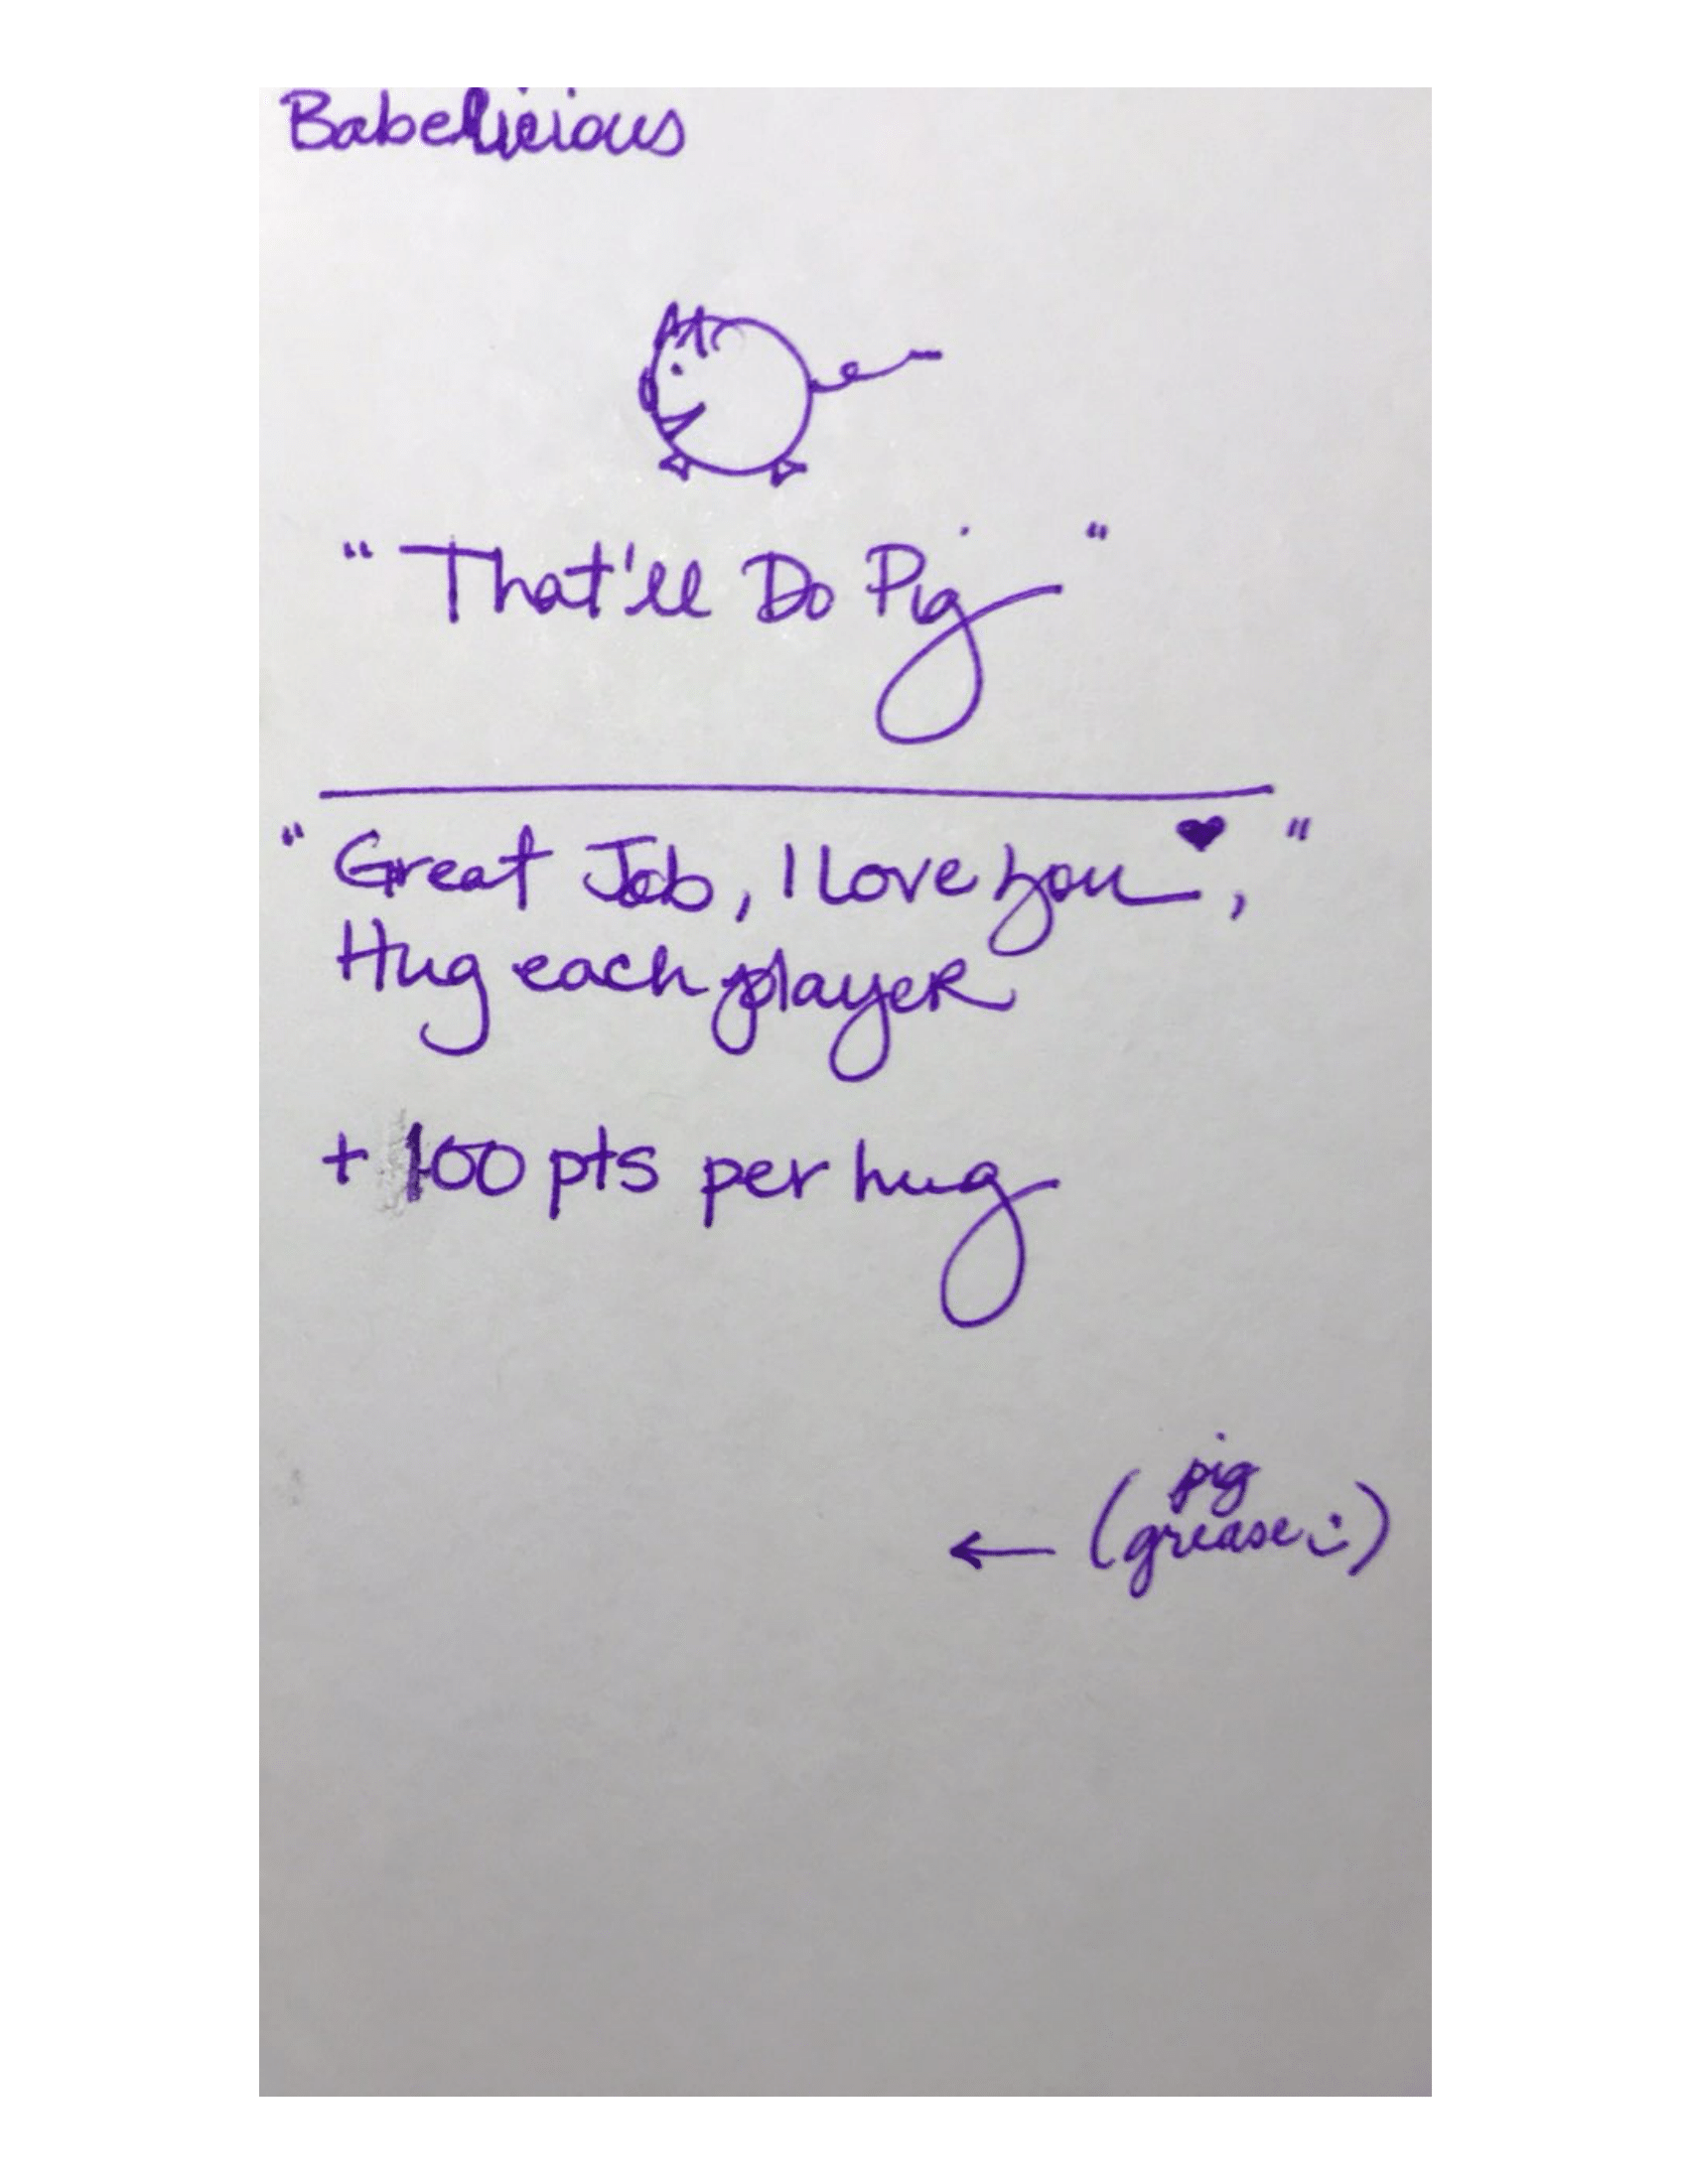 Babelicious
"That'll Do Pig"
"Great Job, I love you ♥,"
Hug each player
+ 100 pts per hug
pig
← (grease :))